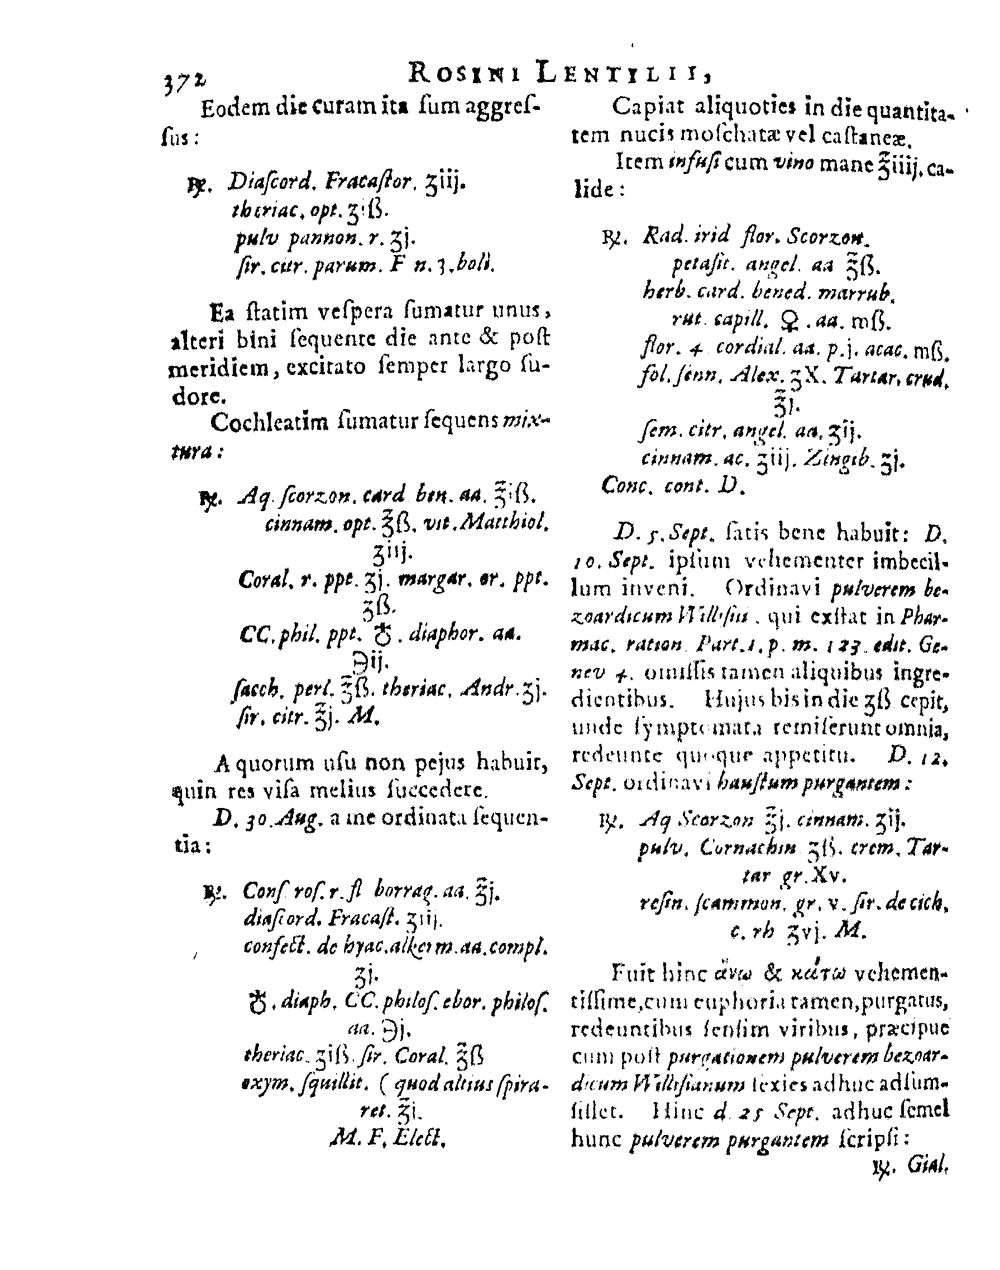 372
ROSINI LENTILII,
Eodem die curam ita ſum aggreſ-
ſus:
℞. Diaſcord. Fracaſtor. ʒiij.
theriac. opt. ʒiß.
pulv pannon. r. ʒj.
ſir. cur. parum. F n. 3. boli.
Ea ſtatim veſpera ſumatur unus,
alteri bini ſequente die ante & poſt
meridiem, excitato ſemper largo ſu-
dore.
Cochleatim ſumatur ſequens mix-
tura:
℞. Aq. ſcorzon. card ben. aa. ℥iß.
cinnam. opt. ℥ß. vit. Matthiol.
ʒiij.
Coral. r. ppt. ʒj. margar. or. ppt.
ʒß.
CC. phil. ppt. ♁. diaphor. aa.
℈ij.
ſacch. perl. ℥ß. theriac. Andr. ʒj.
ſir. citr. ℥j. M.
A quorum uſu non pejus habuit,
quin res viſa melius ſuccedere.
D. 30. Aug. a me ordinata ſequen-
tia:
℞. Conſ roſ. r. fl borrag. aa. ℥j.
diaſcord. Fracaſt. ʒiij.
confect. de hyac. alkerm. aa. compl.
ʒj.
♁. diaph. CC. philoſ. ebor. philoſ.
aa. ℈j.
theriac. ʒiß. ſir. Coral. ℥ß
oxym. ſquillit. ( quod altius ſpira-
ret. ℥j.
M. F. Elect.
Capiat aliquoties in die quantita-
tem nucis moſchatæ vel caſtaneæ.
Item infuſi cum vino mane ℥iiij. ca-
lide:
℞. Rad. irid flor. Scorzon.
petaſit. angel. aa ℥ß.
herb. card. bened. marrub.
rut. capill. ♀. aa. mß.
flor. 4 cordial. aa. p.j. acac. mß.
fol. ſenn. Alex. ʒX. Tartar. crud.
℥j.
ſem. citr. angel. aa. ʒij.
cinnam. ac. ʒiij. Zingib. ʒj.
Conc. cont. D.
D. 5. Sept. ſatis bene habuit: D.
10. Sept. ipſum vehementer imbecil-
lum inveni. Ordinavi pulverem be-
zoardicum Willisii, qui exſtat in Phar-
mac. ration Part. 1. p. m. 123. edit. Ge-
nev 4. omiſſis tamen aliquibus ingre-
dientibus. Hujus bis in die ʒß cepit,
unde ſymptomata remiſerunt omnia,
redeunte quoque appetitu. D. 12.
Sept. ordinavi hauſtum purgantem:
℞. Aq Scorzon ℥j. cinnam. ʒij.
pulv. Cornachin ʒß. crem. Tar-
tar gr. Xv.
reſin. ſcammon. gr. v. ſir. de cich.
c. rh ʒvj. M.
Fuit hinc ἄνω & κάτω vehemen-
tiſſime, cum euphoria tamen, purgatus,
redeuntibus ſenſim viribus, præcipue
cum poſt purgationem pulverem bezoar-
dicum Willisianum ſexies adhuc adſum-
ſiſſet. Hinc d. 25 Sept. adhuc ſemel
hunc pulverem purgantem ſcripſi:
℞. Gial.